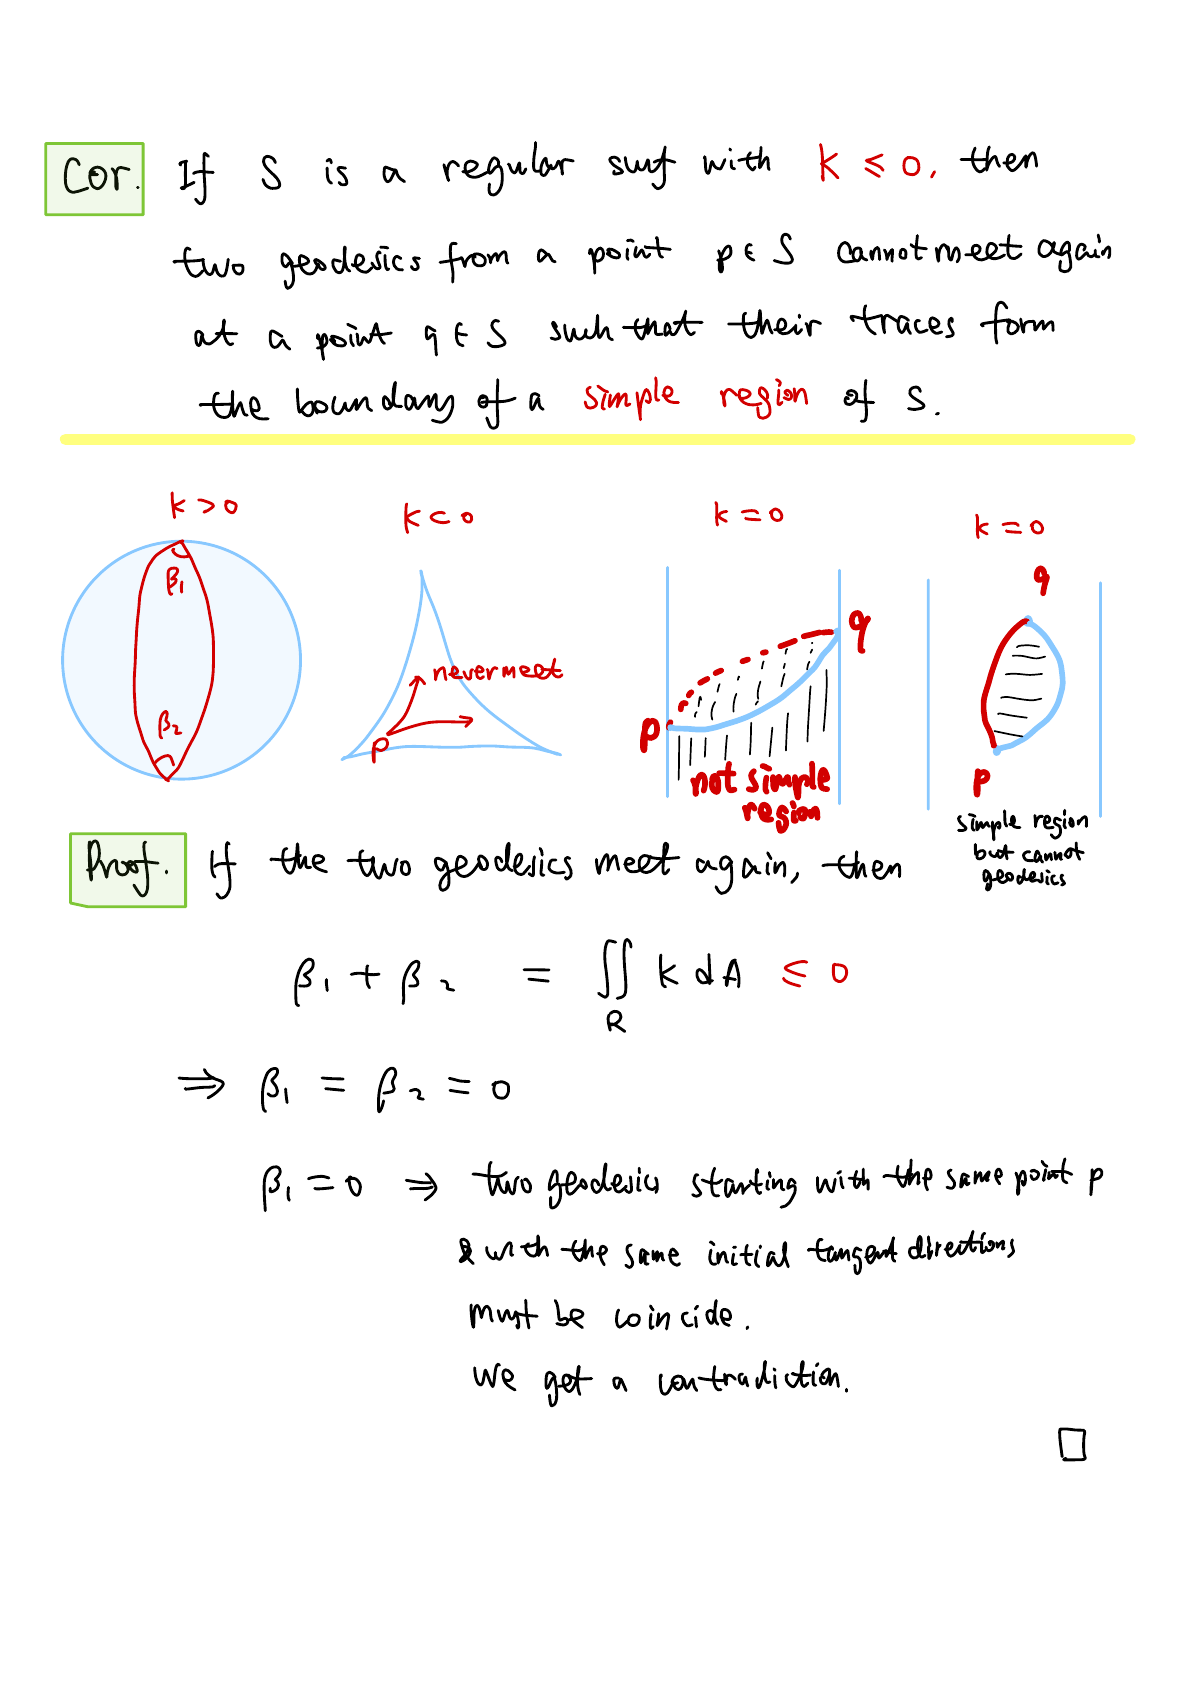 Cor. If S is a regular surf with K ≤ 0, then
two geodesics from a point p ∈ S cannot meet again
at a point q ∈ S such that their traces form
the boundary of a simple region of S.
K > 0
K < 0
K = 0
K = 0
β₁
β₂
never meet
p
p
q
not simple
region
q
p
simple region
but cannot
geodesics
Proof. If the two geodesics meet again, then
β₁ + β₂ = ∬_R K dA ≤ 0
⇒ β₁ = β₂ = 0
β₁ = 0 ⇒ two geodesics starting with the same point p
& with the same initial tangent directions
must be coincide.
We get a contradiction.
□